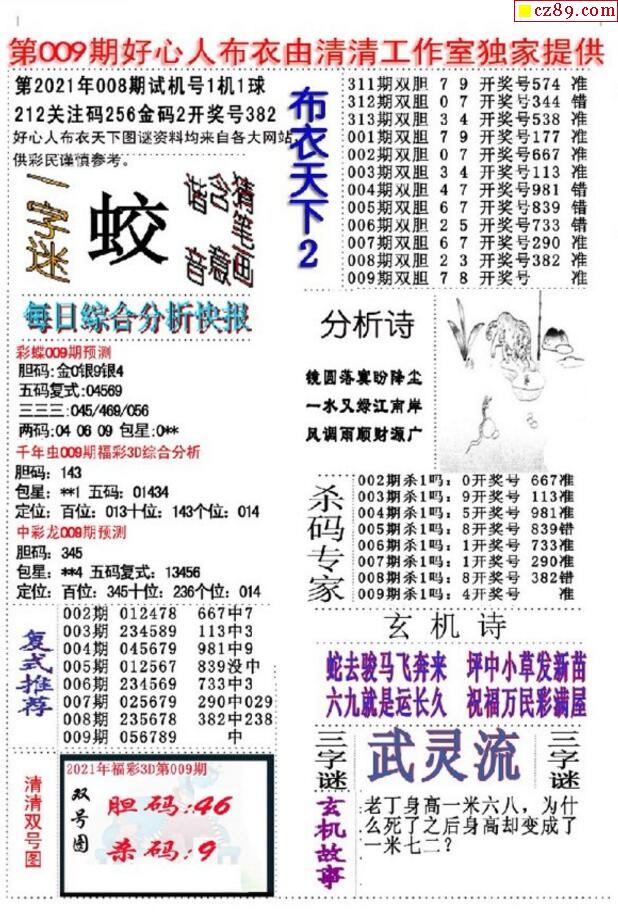 cz89.com
第009期好心人布衣由清清工作室独家提供
第2021年008期试机号1机1球
212关注码256金码2开奖号382
好心人布衣天下图谜资料均来自各大网站
供彩民谨慎参考。
一字迷
蛟
谐音
含意
猜笔画
每日综合分析快报
彩蝶009期预测
胆码:金0银9银4
五码复式:04569
三三三:045/469/056
两码:04 06 09 包星:0**
千年虫009期福彩3D综合分析
胆码: 143
包星: **1 五码: 01434
定位: 百位: 013十位: 143个位: 014
中彩龙009期预测
胆码: 345
包星: **4 五码复式: 13456
定位: 百位: 345十位: 236个位: 014
复式推荐
002期 012478 667中7
003期 234589 113中3
004期 045679 981中9
005期 012567 839没中
006期 234569 733中3
007期 025679 290中029
008期 235678 382中238
009期 056789 中
清清双号图
2021年福彩3D第009期
双号图
胆码:46
杀码:9
布衣天下2
311期双胆 7 9 开奖号574 准
312期双胆 0 7 开奖号344 错
313期双胆 3 4 开奖号538 准
001期双胆 7 9 开奖号177 准
002期双胆 0 7 开奖号667 准
003期双胆 3 4 开奖号113 准
004期双胆 4 7 开奖号981 错
005期双胆 6 7 开奖号839 错
006期双胆 2 5 开奖号733 错
007期双胆 6 7 开奖号290 准
008期双胆 2 3 开奖号382 准
009期双胆 7 8 开奖号 准
分析诗
镜圆落寞盼降尘
一水又绿江南岸
风调雨顺财源广
杀码专家
002期杀1吗: 0开奖号 667准
003期杀1吗: 9开奖号 113准
004期杀1吗: 5开奖号 981准
005期杀1吗: 8开奖号 839错
006期杀1吗: 1开奖号 733准
007期杀1吗: 1开奖号 290准
008期杀1吗: 8开奖号 382错
009期杀1吗: 4开奖号 准
玄机诗
蛇去骏马飞奔来 坪中小草发新苗
六九就是运长久 祝福万民彩满屋
三字谜
武灵流
三字谜
玄机故事
老丁身高一米六八，为什
么死了之后身高却变成了
一米七二？